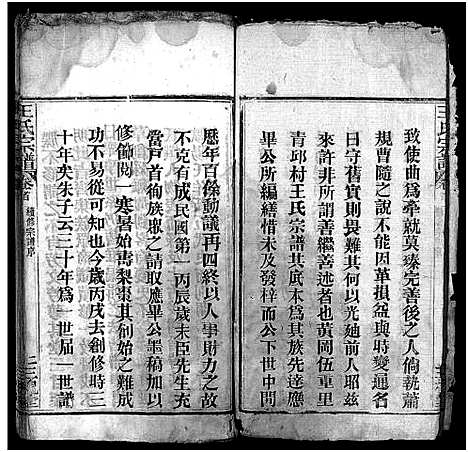 致使曲為牽就莫臻完善後之人倘執蕭
規曹隨之說不因革損益與時變通名
曰守舊實則畏難其何以光廸前人昭茲
來許非所謂善繼善述者也黃岡伍重里
青邱村王氏宗譜其底本為其族先達應
畢公所編繕惜未及發梓而公下世中間
歷年百餘動議再四終以人事財力之故
不克有成民國第一丙辰歲末臣先生充
當戶首徇族眾之請取應畢公墨稿加以
修飾閱一寒暑始壽梨棗其創始之難成
功不易從可知也今歲丙戌去創修時三
十年矣朱子云三十年為一世屆一世譜
王氏宗譜
卷首
續修宗譜序
王氏宗譜